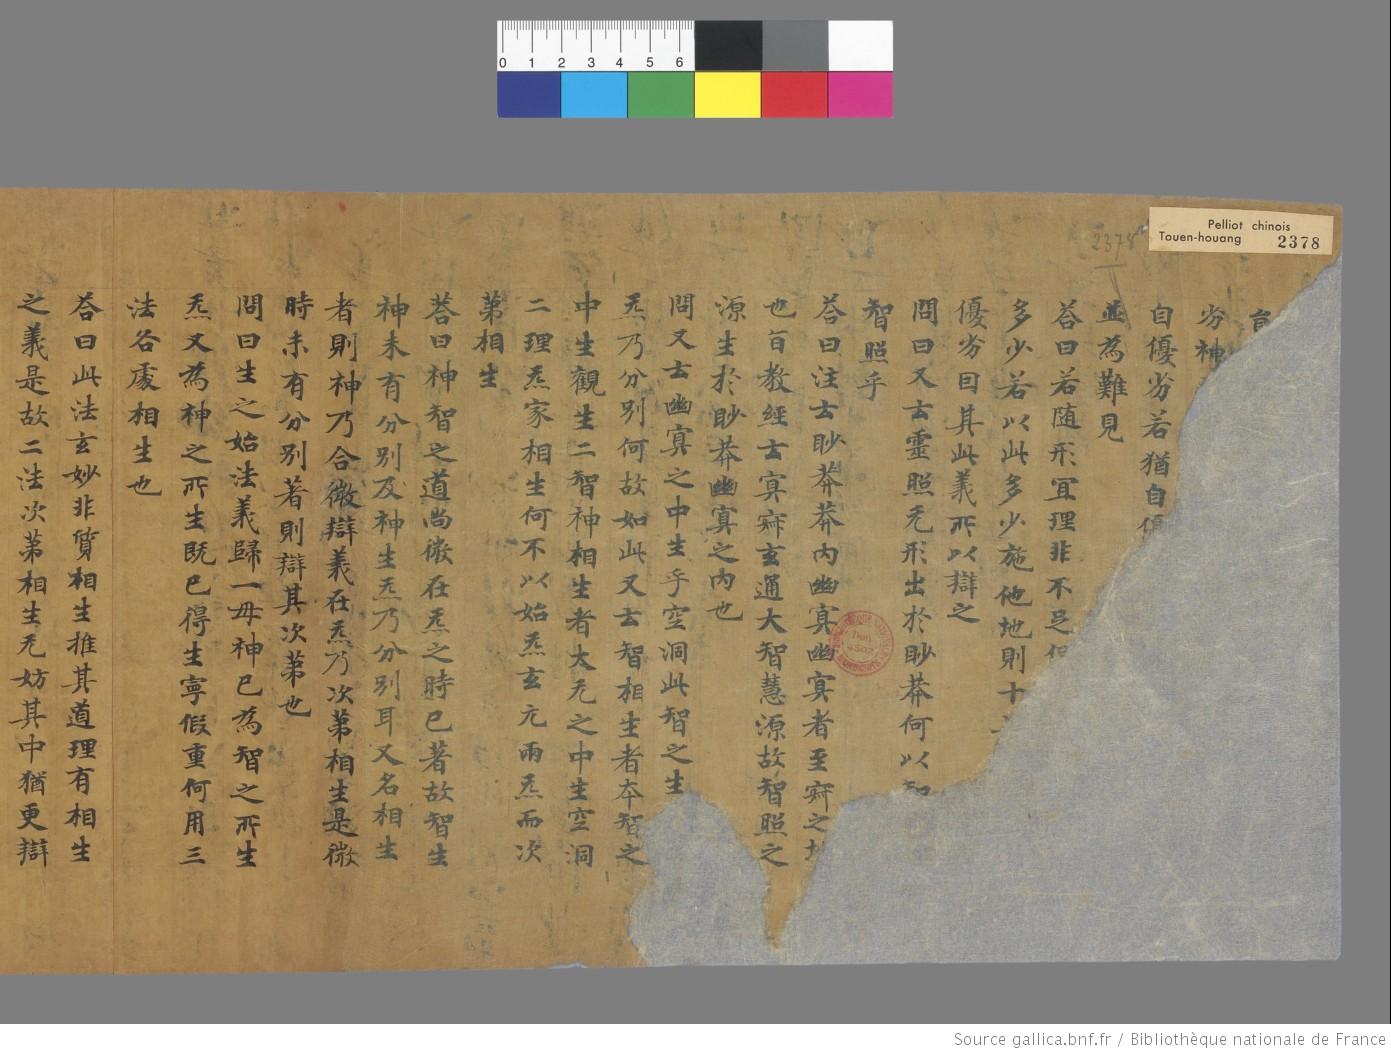 Pelliot chinois
Touen-houang 2378
2378
劣神
自優劣若猶自優
並為難見
荅曰若随形冝理非不足
多少若以此多少施他地則十
優劣因其此義所以辯之
問曰又云靈照无形出於眇莽何以智
智照乎
荅曰注云眇莽莽内幽㝠幽㝠者至寂之
也百教經云㝠寂玄通大智慧源故智照之
源生於眇莽幽㝠之内也
問又云幽㝠之中生乎空洞此智之生
炁乃分别何故如此又云智相生者本智之
中生觀生二智神相生者太无之中生空洞
二理炁家相生何不以始炁玄元兩炁而次
第相生
荅曰神智之道尚微在炁之時已著故智生
神未有分别及神生炁乃分别耳又名相生
者則神乃合微辯義在炁乃次第相生是微
時未有分别著則辯其次第也
問曰生之始法義歸一毋神已為智之所生
炁又為神之所生既已得生寧假重何用三
法各處相生也
荅曰此法玄妙非質相生推其道理有相生
之義是故二法次第相生无妨其中猶更辯
0 1 2 3 4 5 6
Source gallica.bnf.fr / Bibliothèque nationale de France